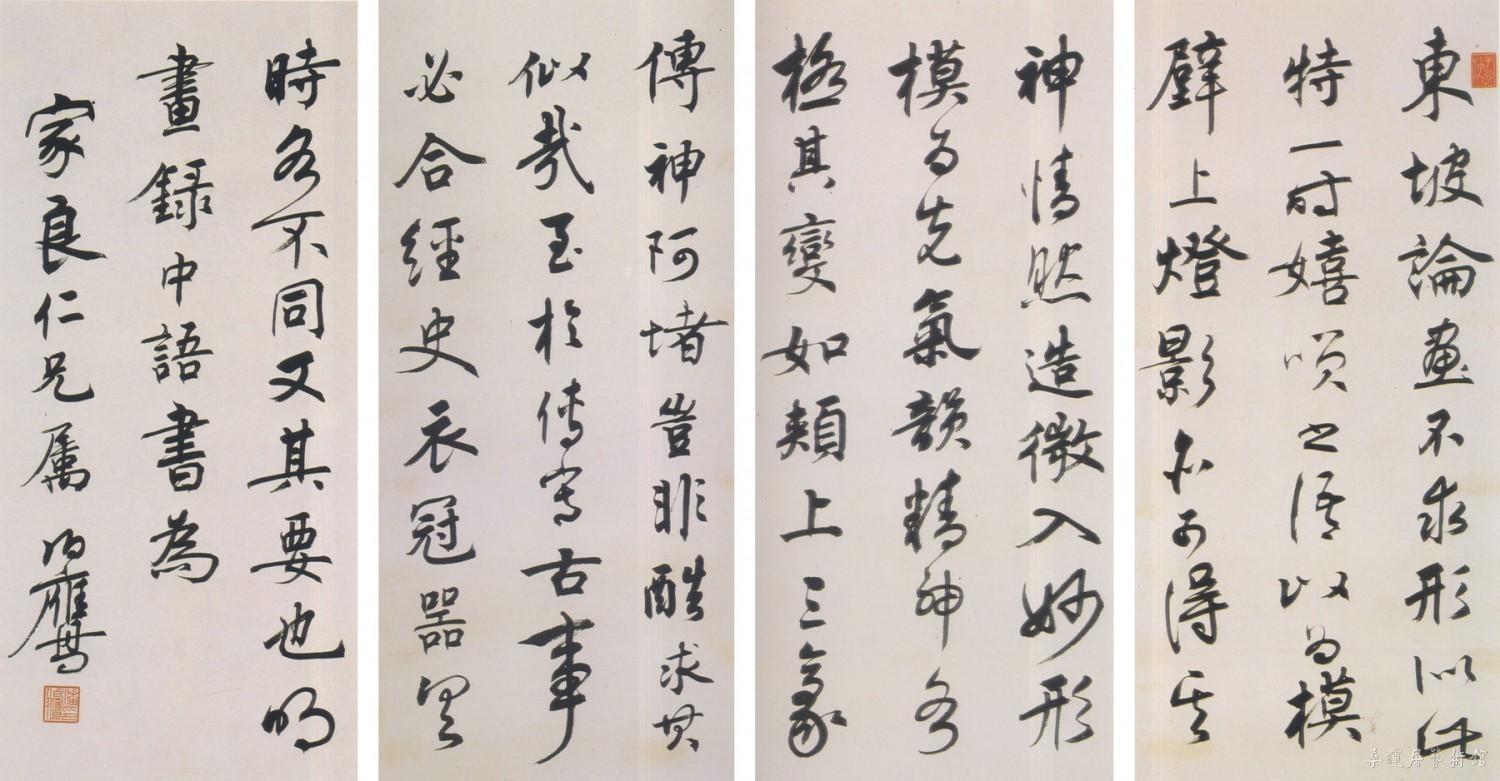 東坡論畫不求形似此
特一时嬉咲之語以为模
壁上燈影不可得其
神情然造微入妙形
模为先氣韻精神各
極其變如頰上三豪
傳神阿堵豈非酷求其
似哉至於傳寫古事
必合經史衣冠器具
時各不同又其要也明
畫錄中語書為
家良仁兄屬 伯鷹
桑蓮居藝術館